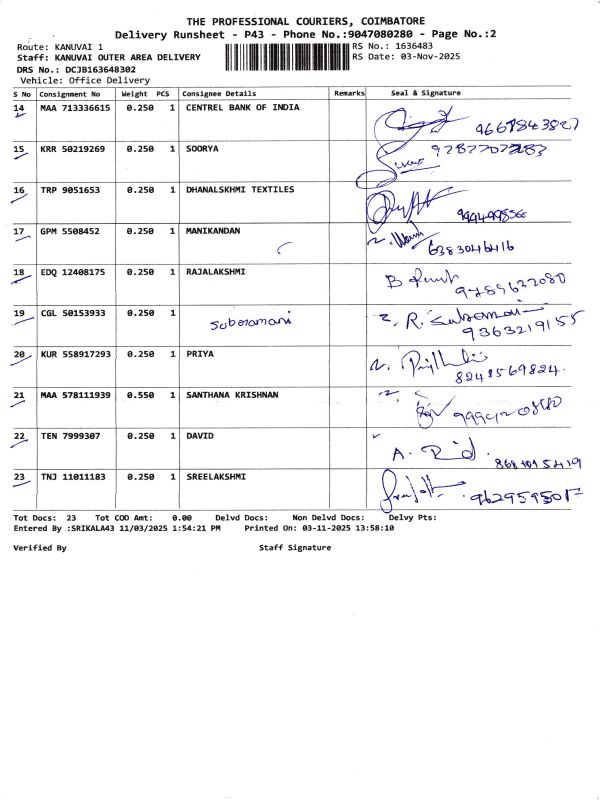 THE PROFESSIONAL COURIERS, COIMBATORE
Delivery Runsheet - P43 - Phone No.:9047080280 - Page No.:2
Route: KANUVAI 1 RS No.: 1636483
Staff: KANUVAI OUTER AREA DELIVERY RS Date: 03-Nov-2025
DRS No.: DCJB163648302
Vehicle: Office Delivery
S No Consignment No Weight PCS Consignee Details Remarks Seal & Signature
14 MAA 713336615 0.250 1 CENTREL BANK OF INDIA
15 KRR 50219269 0.250 1 SOORYA
16 TRP 9051653 0.250 1 DHANALSKHMI TEXTILES
17 GPM 5508452 0.250 1 MANIKANDAN
6383046416
18 EDQ 12408175 0.250 1 RAJALAKSHMI
9789632080
19 CGL 50153933 0.250 1
Subramani
9363219155
20 KUR 558917293 0.250 1 PRIYA
8248569824
21 MAA 578111939 0.550 1 SANTHANA KRISHNAN
22 TEN 7999307 0.250 1 DAVID
23 TNJ 11011183 0.250 1 SREELAKSHMI
Tot Docs: 23 Tot COD Amt: 0.00 Delvd Docs: Non Delvd Docs: Delvy Pts:
Entered By :SRIKALA43 11/03/2025 1:54:21 PM Printed On: 03-11-2025 13:58:10
Verified By Staff Signature